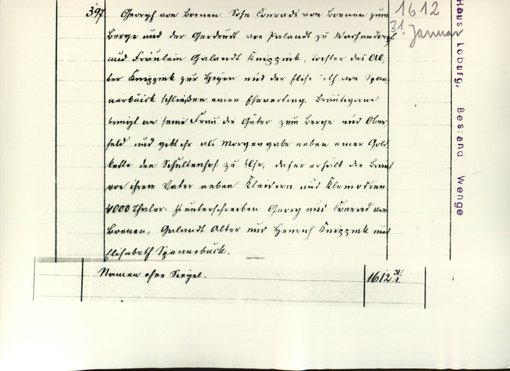 397 Georgh von Boenen Sohn Conrads von Boenen zum
Berge und der Gerdrut von Palandt zu Wachendorf
und Fräulein Galandt Knippink, Tochter des Al-
ter Knippink zur Heyen und der Else von Span-
narbüick schließen einen Ehevertrag. Bräutigam
bringt an seine Frau die Güter zum Berge und Ober-
feld und gibt ihr als Morgengabe neben einer Gold-
kette den Schultenhof zu Ehr, dafür erhält die Braut
von ihrem Vater neben Kleidern und Kleinodien
4000 Thaler. Es unterschreiben Georg und Conrad von
Boenen, Galandt Alter und Heinrich Knippink und
Elisabeth Spannerbück.
Namen ohne Siegel.
1612 31/1.
1612
31. Januar
Haus Loburg, Bestand Wenge